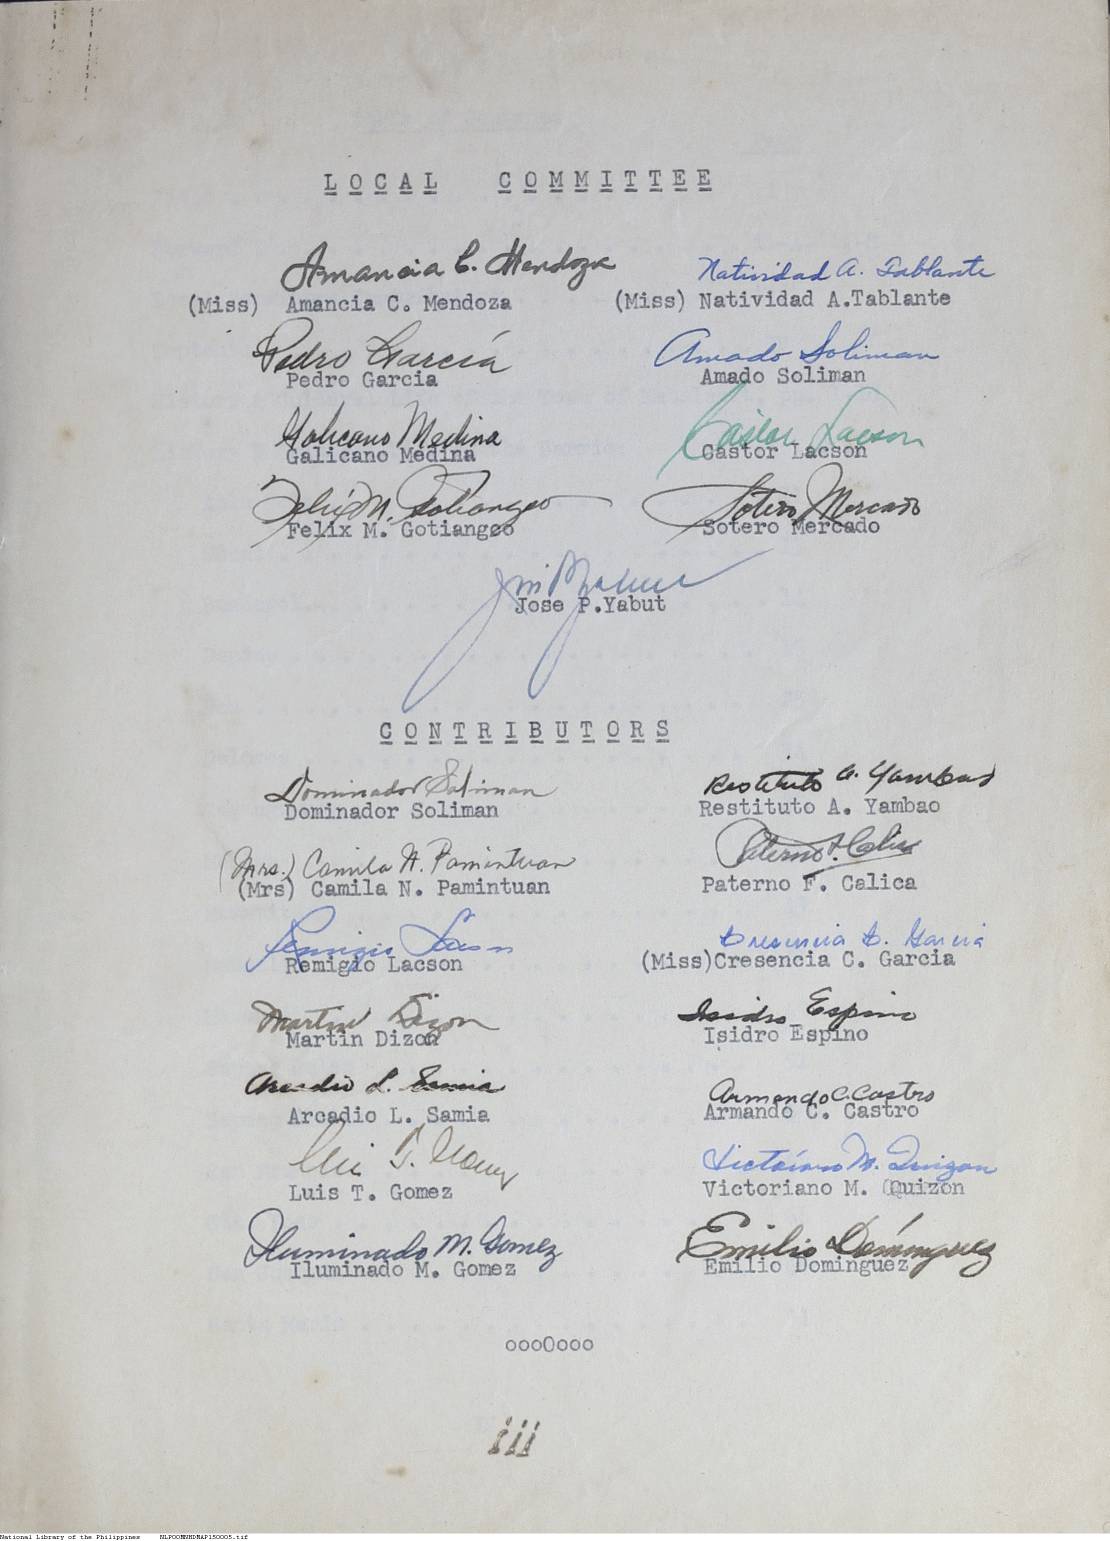 LOCAL COMMITTEE
Amancia C. Mendoza Natividad A. Tablante
(Miss) Amancia C. Mendoza (Miss) Natividad A.Tablante
Pedro García Amado Soliman
Pedro Garcia Amado Soliman
Galicano Medina Castor Lacson
Galicano Medina Castor Lacson
Felix M. Gotiangco Sotero Mercado
Felix M. Gotiangco Sotero Mercado
Jose P.Yabut
CONTRIBUTORS
Dominador Soliman Restituto A. Yambao
Dominador Soliman Restituto A. Yambao
(Mrs.) Camila N. Pamintuan Paterno F. Calica
(Mrs) Camila N. Pamintuan Paterno F. Calica
Remigio Lacson Cresencia C. Garcia
Remigio Lacson (Miss)Cresencia C. Garcia
Martin Dizon Isidro Espino
Martin Dizon Isidro Espino
Arcadio L. Samia Armando C. Castro
Arcadio L. Samia Armando C. Castro
Luis T. Gomez Victoriano M. Quizon
Luis T. Gomez Victoriano M. Quizon
Iluminado M. Gomez Emilio Domínguez
Iluminado M. Gomez Emilio Dominguez
oooOooo
iii
National Library of the Philippines NLPOOMNHDMAP150005.tif